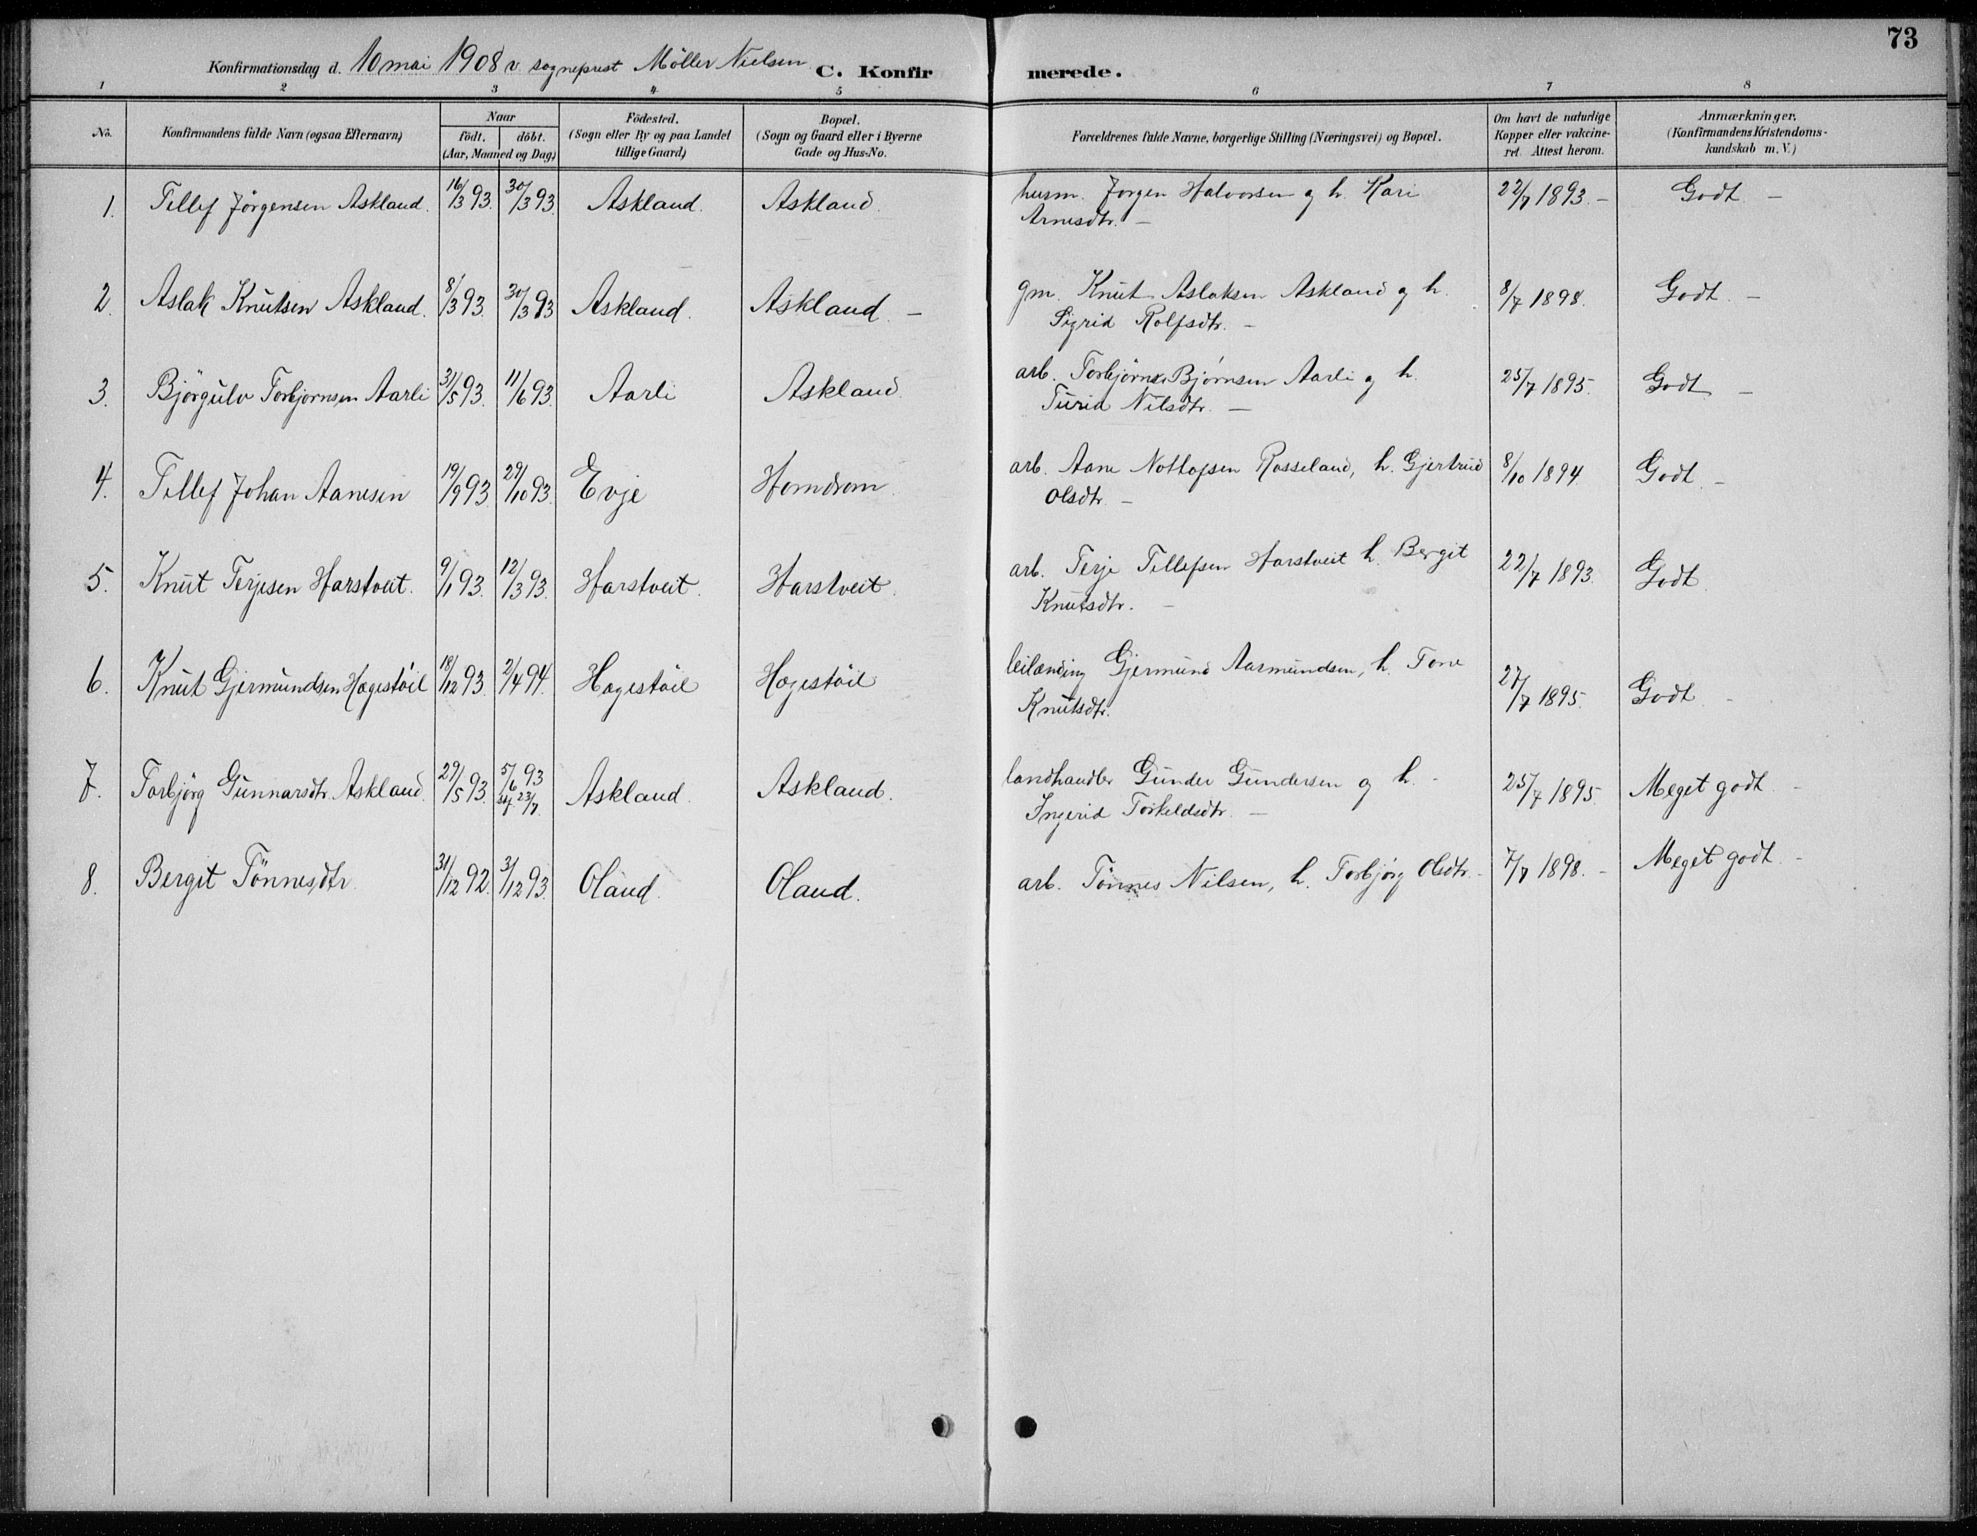 73
Konfirmationsdag d. 10 mai 1908 v. sogneprest Møller Nielsen C. Konfirmerede.
1 2 3 4 5 6 7 8
No. Konfirmandens fulde Navn (ogsaa Efternavn) Naar födt. döbt. (Aar, Maaned og Dag) Födested. (Sogn eller By og paa Landet tillige Gaard) Bopæl. (Sogn og Gaard eller i Byerne Gade og Hus-No. Forældrenes fulde Navne, borgerlige Stilling (Næringsvei) og Bopæl. Om havt de naturlige Kopper eller vakcineret. Attest herom. Anmærkninger. (Konfirmandens Kristendomskundskab m. V.)
1. Tellef Jörgensen Askland. 16/3 93. 30/3 93. Askland. Askland. husm. Jørgen Halvorsen og h. Kari 22/7 1893. – Godt –
Arnesdtr. –
2. Aslak Knutsen Askland. 8/3 93. 30/3 93 Askland. Askland. – gm. Knut Aslaksen Askland og h. 8/7 1898. Godt. –
Sigrid Rolfsdtr. –
3. Bjørgulv Torbjørnsen Aarli 31/5 93. 11/6 93. Aarli Askland. arb. Torbjørn Bjørnsen Aarli og h. 25/7 1895. Godt –
Turid Nilsdtr. –
4. Tellef Johan Aanesen 19/9 93 29/10 93. Evje Horndrom. arb. Aane Nottofsen Rosseland, h. Gjertrud 8/10 1894 Godt. –
Olsdtr. –
5. Knut Terjesen Harstveit. 9/1 93. 12/3 93. Harstveit. Harstveit. arb. Terje Tellefsen Harstveit h. Bergit 22/7 1893. Godt.
Knutsdtr. –
6. Knut Gjermundsen Hagestøil 18/12 93. 2/4 94. Hagestøil Hagestøil leilænding Gjermund Aasmundsen, h. Tone 27/7 1895. Godt –
Knutsdtr.
7. Torbjörg Gunnarsdtr. Askland. 29/5 93. 5/6 93 stf. 23/7. Askland. Askland. landhandler Gunder Gundersen og h. – 25/7 1895. Meget godt –
Ingerid Torkeldsdtr. –
8. Bergit Tönnesdtr. 31/12 92. 3/12 93. Oland. Oland. arb. Tönnes Nilsen, h. Torbjørg Olsdtr. – 7/7 1898. – Meget godt. –